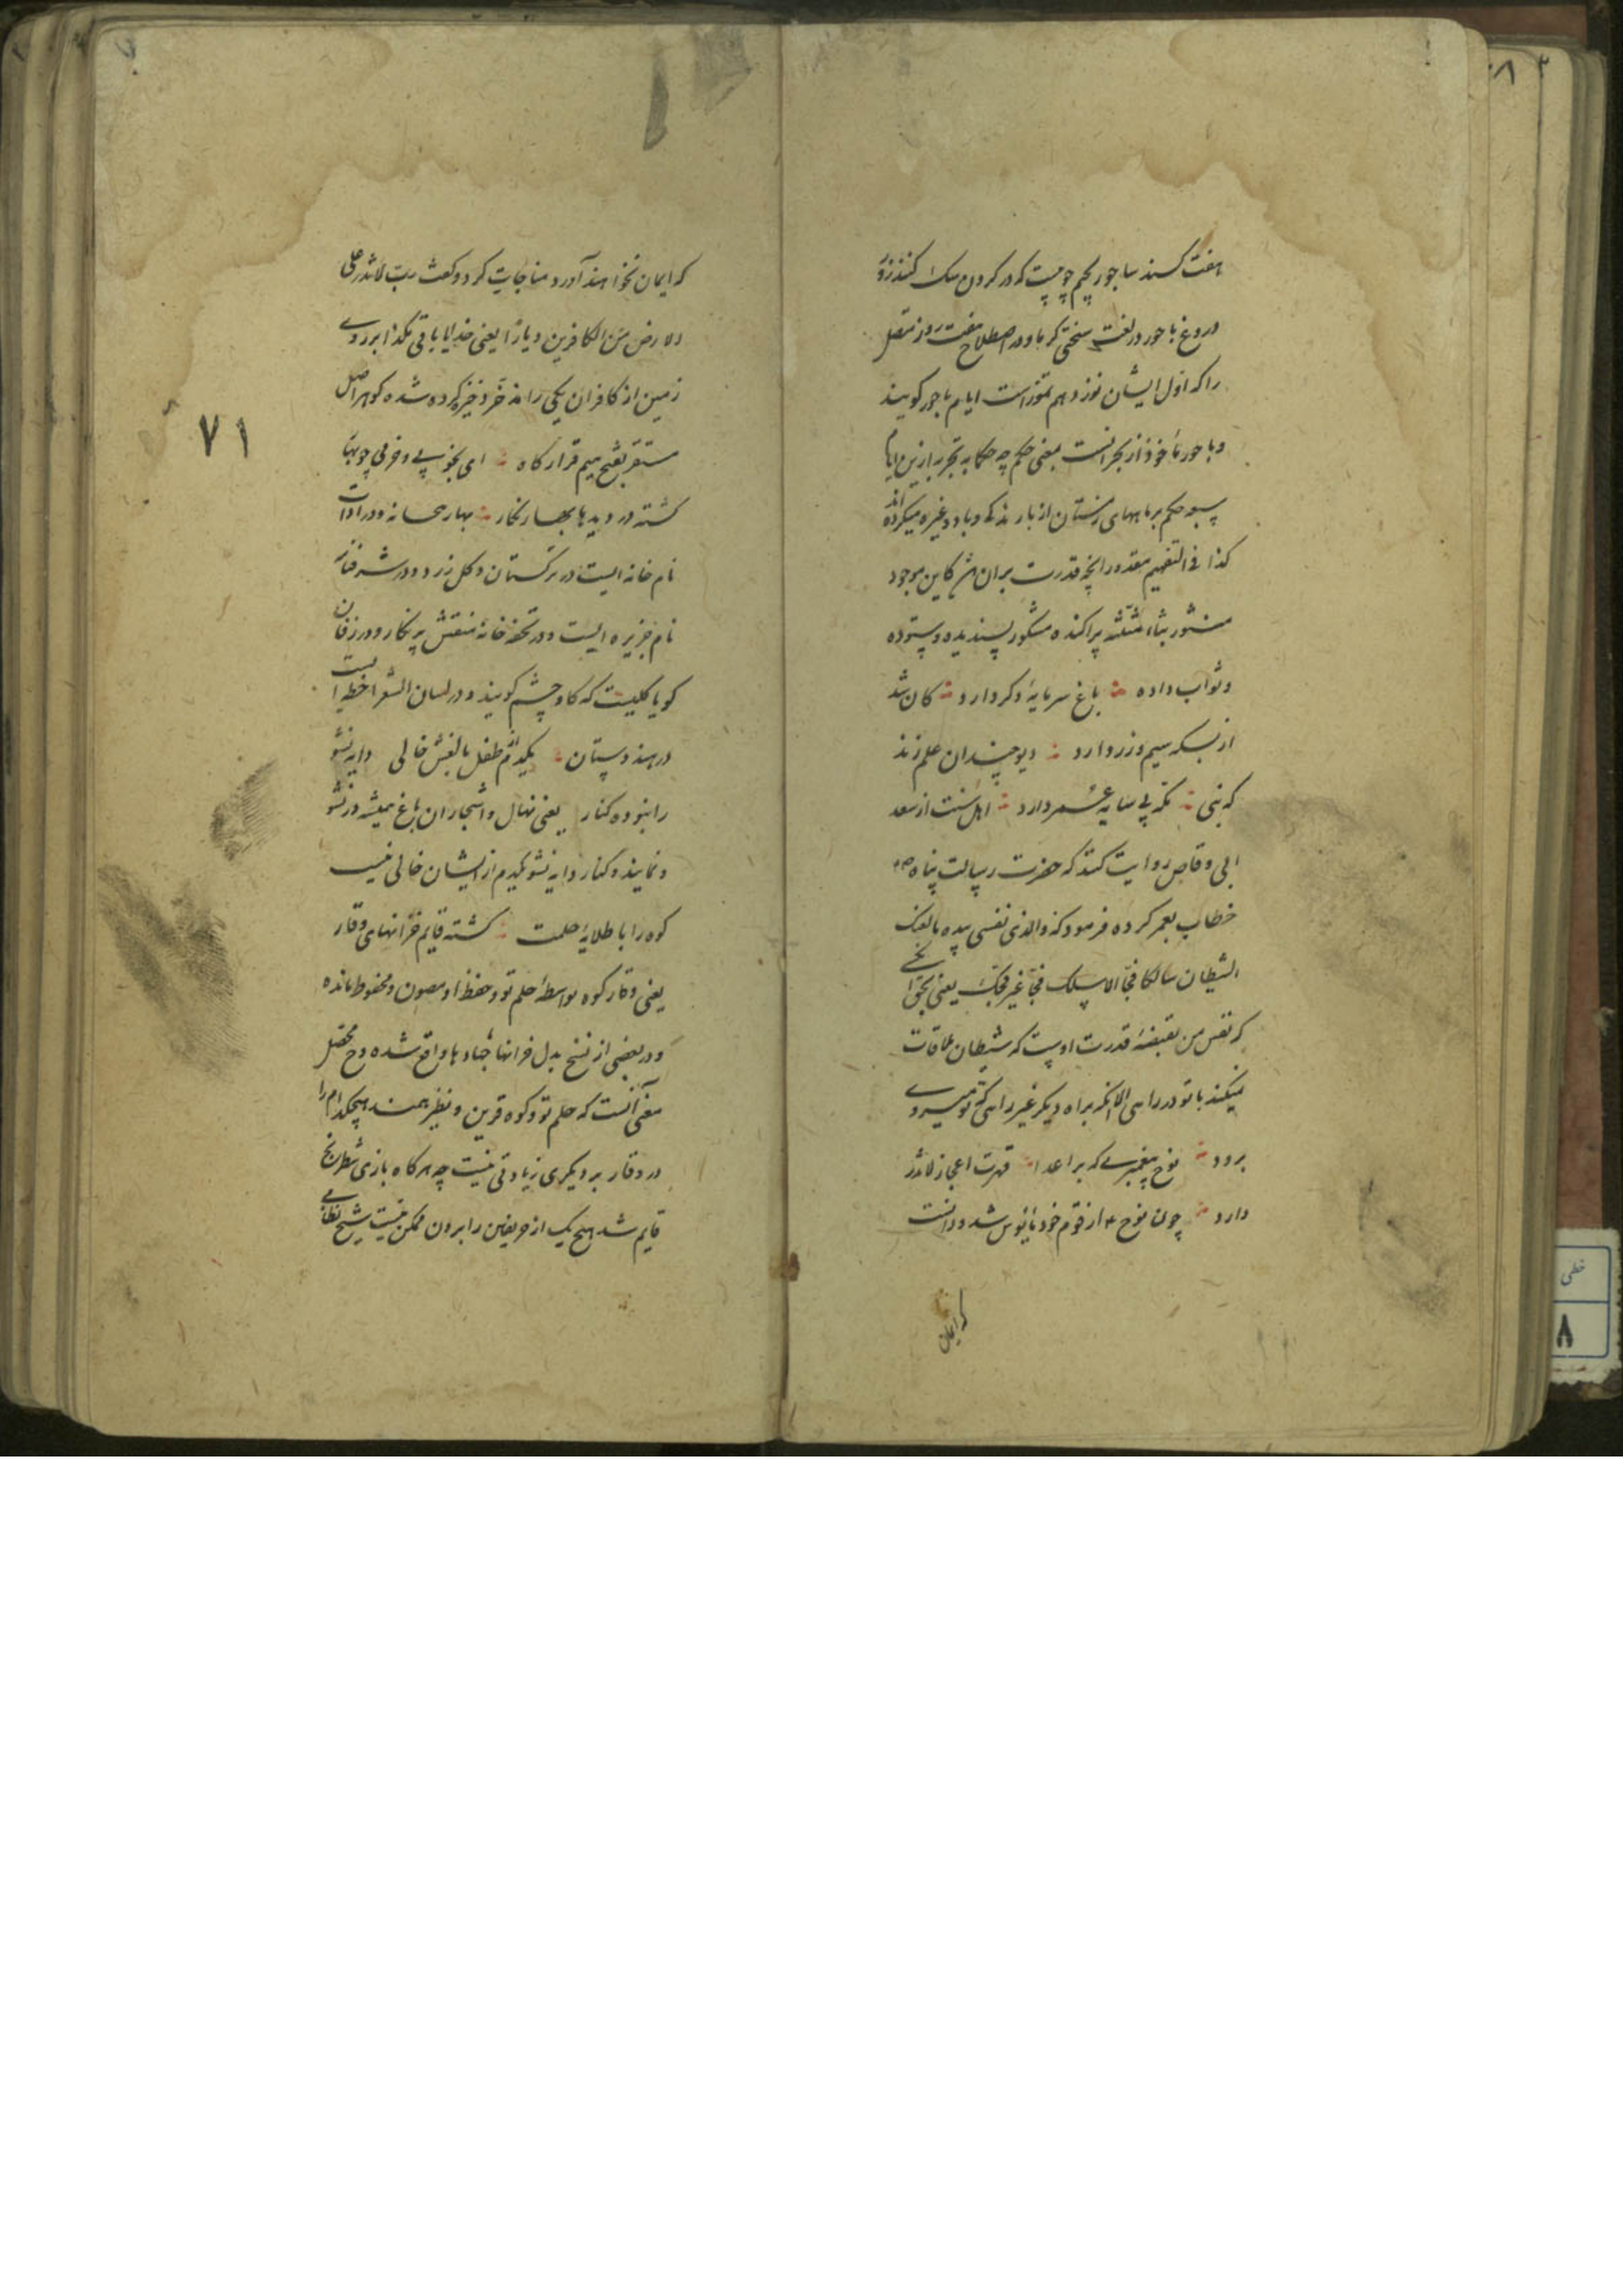 هفت کنند ساجور بجیم چوبیست که در کردن سک کنند زور
دروغ باحور در لغت سختی کرما و در اصطلاح هفت روز متصل
را که اول ایشان نوزدهم تموز است ایام باحور کویند
و باحور ماخوذ از بحرانست بمعنی حکم چه حکما بتجربه ازین ایام
حکم بر ماههای زمستان از بارندکی و باد و غیره میکرده اند
کذا فی التفهیم مقدور آنچه قدرت بران کاین موجود
منثور بثاء مثلثه پراکنده مشکور پسندیده و ستوده
و ثواب داده باغ سرمایهٔ دکر دارد کان شد
از بسکه سیم و زر دارد دیو چندان علم زند
که نبی تکه بی سایه عمر دارد اهل سنت از سعد
ابی وقاص روایت کنند که حضرت رسالت پناه
خطاب بعمر کرده فرمود که والذی نفسی بیده ما لقیک
الشیطان سالکا فجا الا سلک فجا غیر فجک یعنی بحق آنکه
که نفس من بقبضهٔ قدرت اوست که شیطان ملاقات
نمیکند با تو در راهی الا انکه براه دیکر غیر راهی که تو میروی
برود نوح پیغمبری که بر اعدا قهرت اعجاز لاتذر
دارد چون نوح از قوم خود مأیوس شد و دانست
که ایمان
که ایمان نخواهند آورد مناجات کرد و کفت رب لا تذر علی
الارض من الکافرین دیارا یعنی خدایا باقی مکذار بر روی
زمین از کافران یکی را مدخر ذخیره کرده شده کوهر اصل
مستقر بفتح میم قرارکاه ای بخوبی و خرمی چو بهار
کشته در دیدها بهار نکار بهار بتخانه و در ادات
نام خانه ایست در ترکستان و کل زرد و در شرفنامه
نام جزیره ایست و در تحفه خانهٔ منقش پر نکار و در زفان
کویا کلیست که کاو چشم کویند و در لسان الشعرا خطه ایست
در هندوستان یکدم از طفل بالغش خالی دایه نشو
را نبوده کنار یعنی نهال و اشجار ان باغ همیشه در نشو
و نمایند و کنار دایه نشو یکدم از ایشان خالی نیست
کوه را با طلایهٔ حلمت کشته قایم خزانهای وقار
یعنی وقار کوه بواسطهٔ حلم تو و حفظ او مصون و محفوظ مانده
و در بعضی از نسخ بدل خزانها جنادبا واقع شده و ح محصل
معنی آنست که حلم تو و کوه قرین و نظیر همند هیچکدام را
در وقار بر دیکری زیادتی نیست چه هرکاه بازی شطرنج
قایم شد هیچ یک از حریفین را بردن ممکن نیست شیخ نظامی
۷۱
خطی
۸